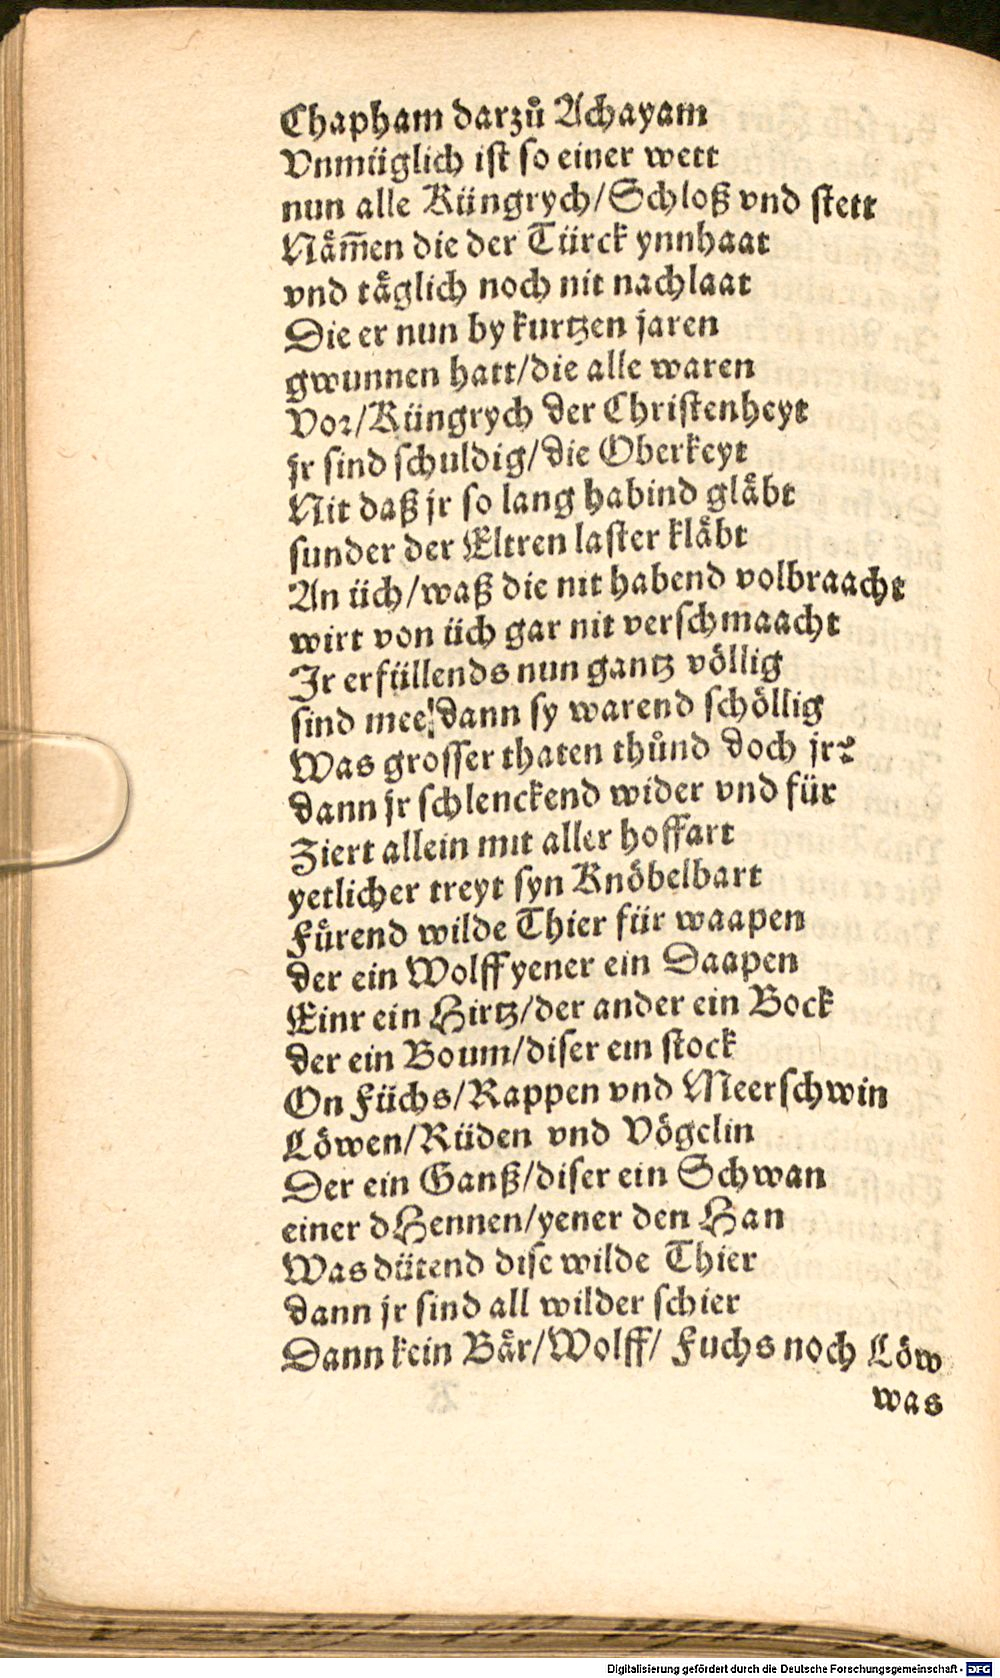 Chapham darzů Achayam
Vnmüglich ist so einer wett
nun alle Küngrych/Schloß vnd stett
Nåm̄en die der Türck ynnhaat
vnd tåglich noch nit nachlaat
Die er nun by kurtzen jaren
gwunnen hatt/die alle waren
Vor/Küngrych der Christenheyt
jr sind schuldig/die Oberkeyt
Nit daß jr so lang habind glåbt
sunder der Eltren laster klåbt
An üch/waß die nit habend volbraacht
wirt von üch gar nit verschmaacht
Ir erfüllends nun gantz völlig
sind mee/dann sy warend schöllig
Was grosser thaten thůnd doch jr?
dann jr schlenckend wider vnd für
Ziert allein mit aller hoffart
yetlicher treyt syn Knöbelbart
Fůrend wilde Thier für waapen
der ein Wolff yener ein Daapen
Einr ein Hirtz/der ander ein Bock
der ein Boum/diser ein stock
On Füchs/Rappen vnd Meerschwin
Löwen/Rüden vnd Vögelin
Der ein Ganß/diser ein Schwan
einer dHennen/yener den Han
Was dütend dise wilde Thier
dann jr sind all wilder schier
Dann kein Bår/Wolff/ Fuchs noch Löw
was
Digitalisierung gefördert durch die Deutsche Forschungsgemeinschaft - DFG